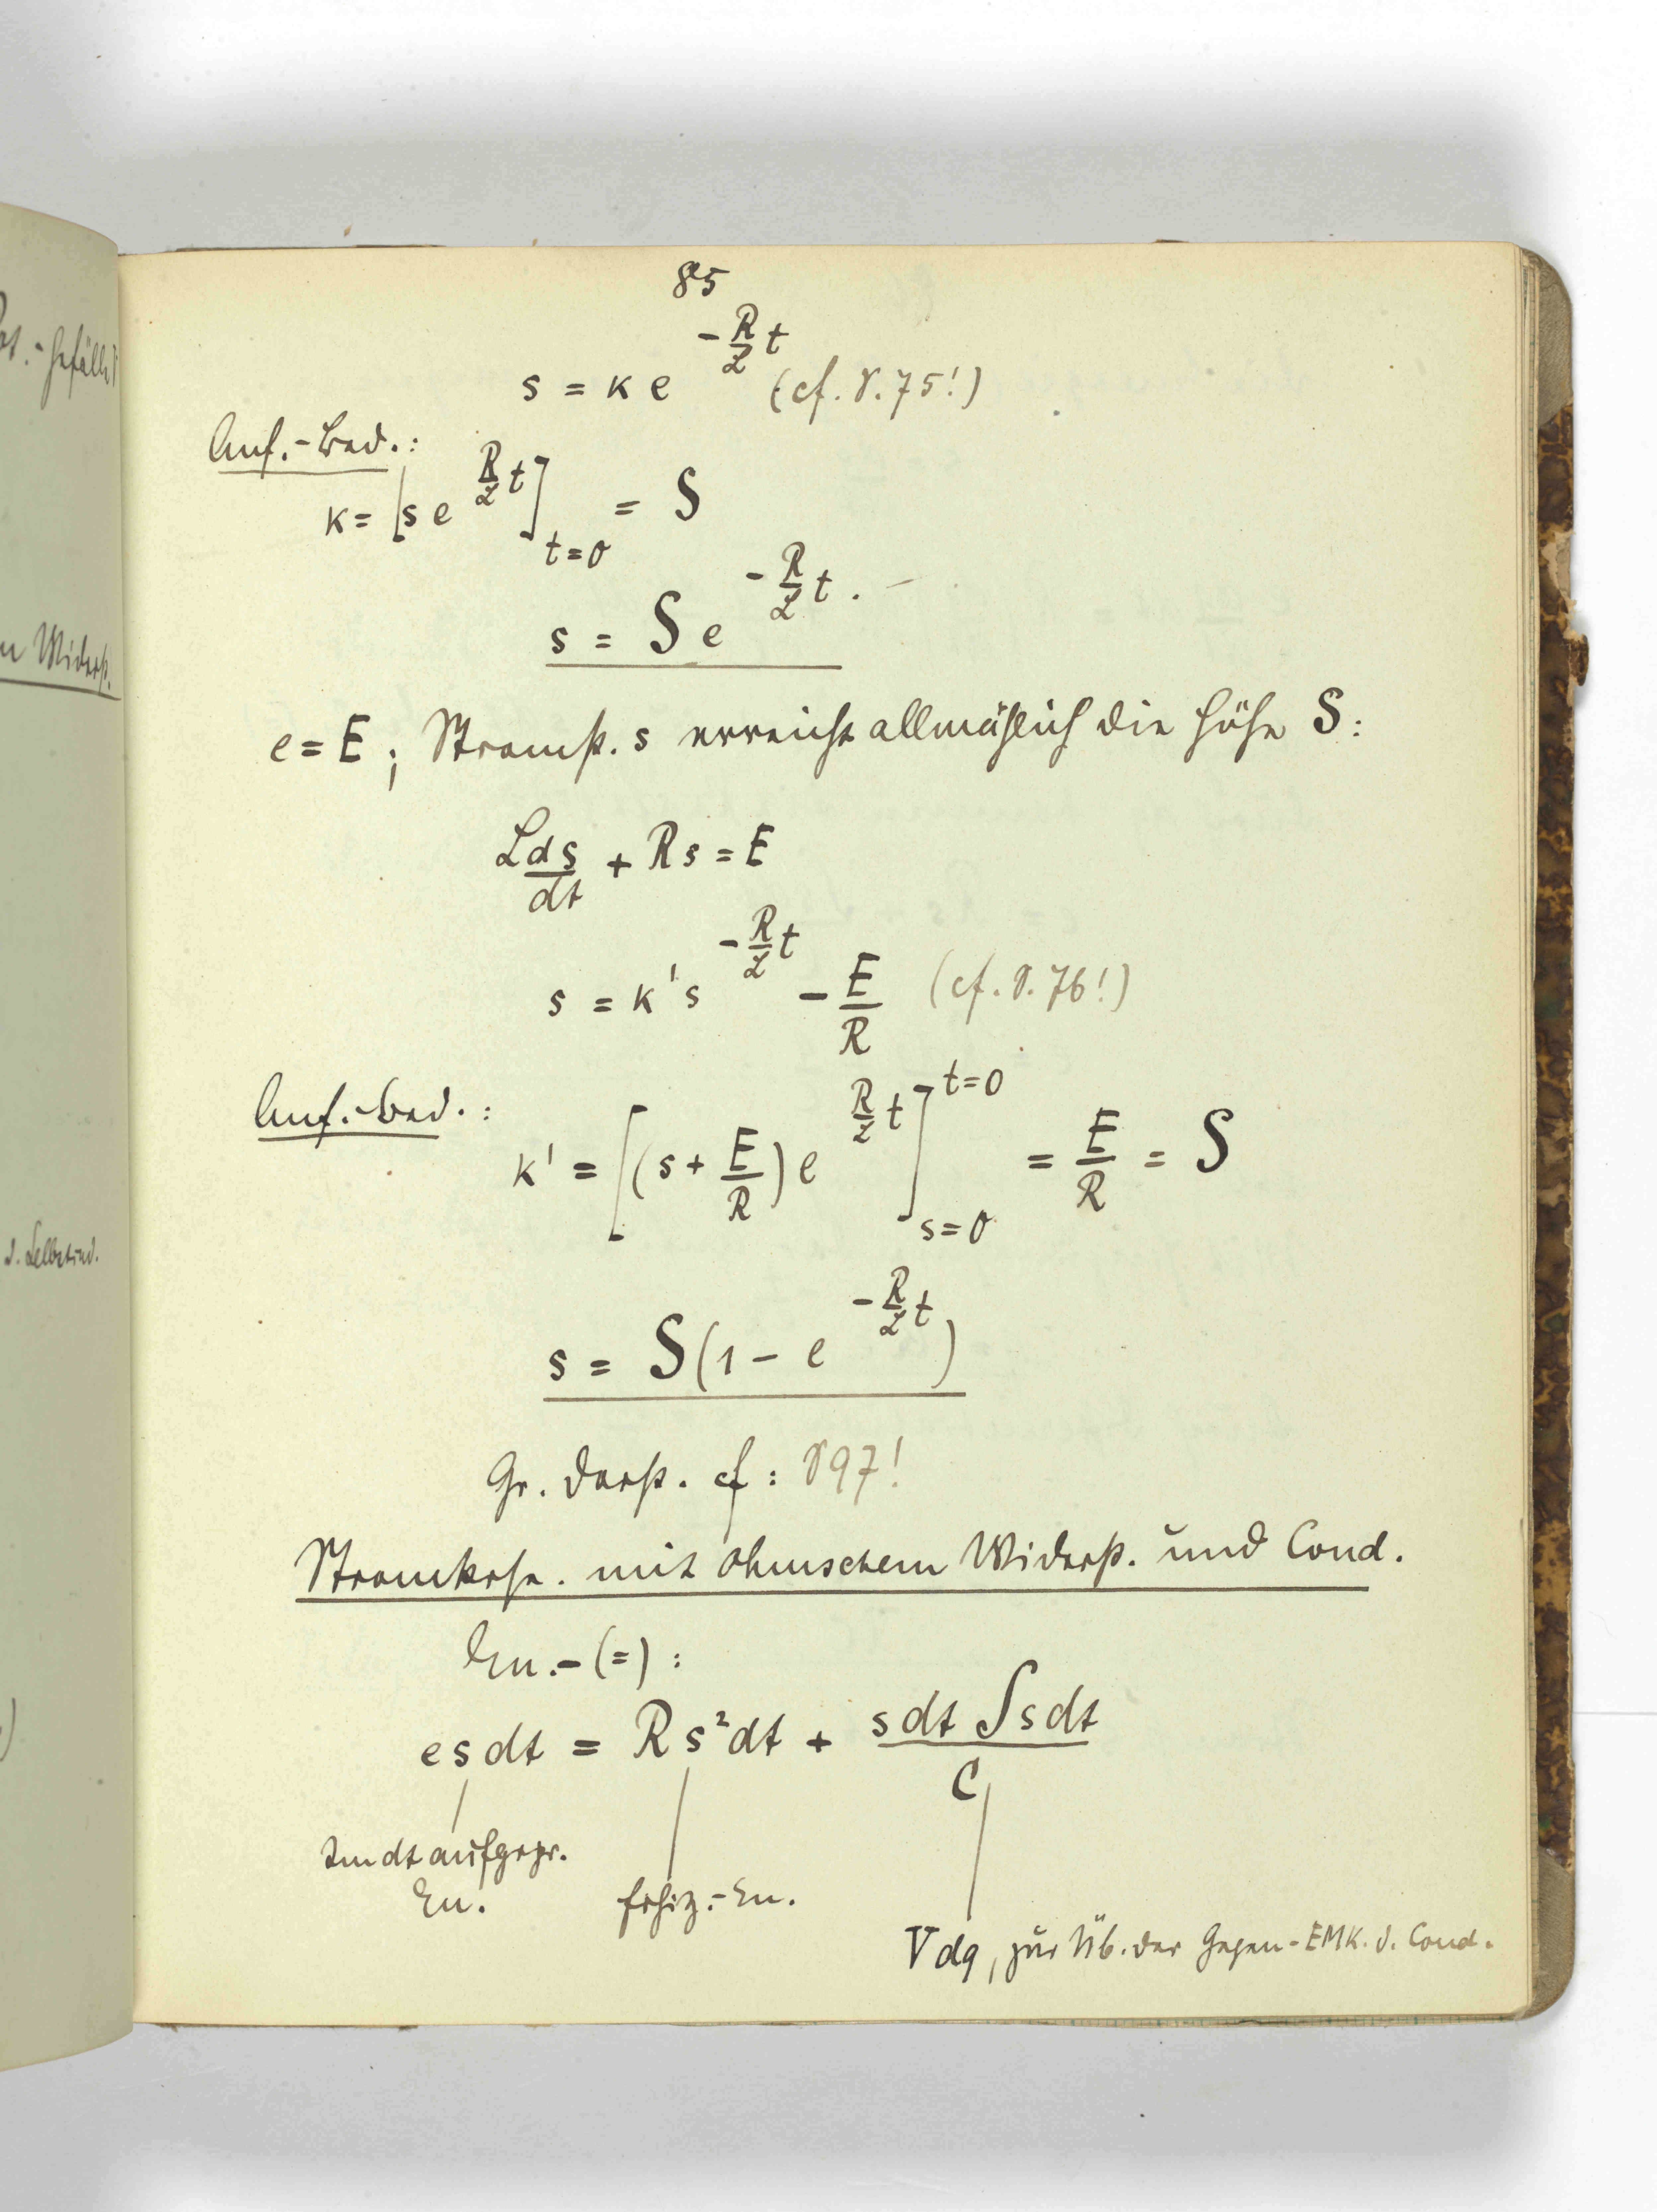 85
s = κ e^{-R/L t} (cf. S. 75!)
Anf.-Bed.:
κ = [s e^{R/L t}]_{t=0} = S
s = S e^{-R/L t}. —
e = E; Stromst. s erreicht allmählich die Höhe S:
L ds/dt + Rs = E
s = κ's^{-R/L t} - E/R (cf. S. 76!)
Anf.-Bed.:
κ' = [(s + E/R) e^{R/L t}]^{t=0}_{s=0} = E/R = S
s = S(1 - e^{-R/L t})
Gr. Darst. cf: S 97!
Stromkrse. mit Ohmschem Widerst. und Cond.
En.-(=):
es dt = Rs²dt + sdt ∫sdt / C
In dt aufgespr.
En.
Erhiz.-En.
Vdq, zur Üb. der Gegen-EMK. d. Cond.
-Gefälle)
Widerst.
d. Selbstind.